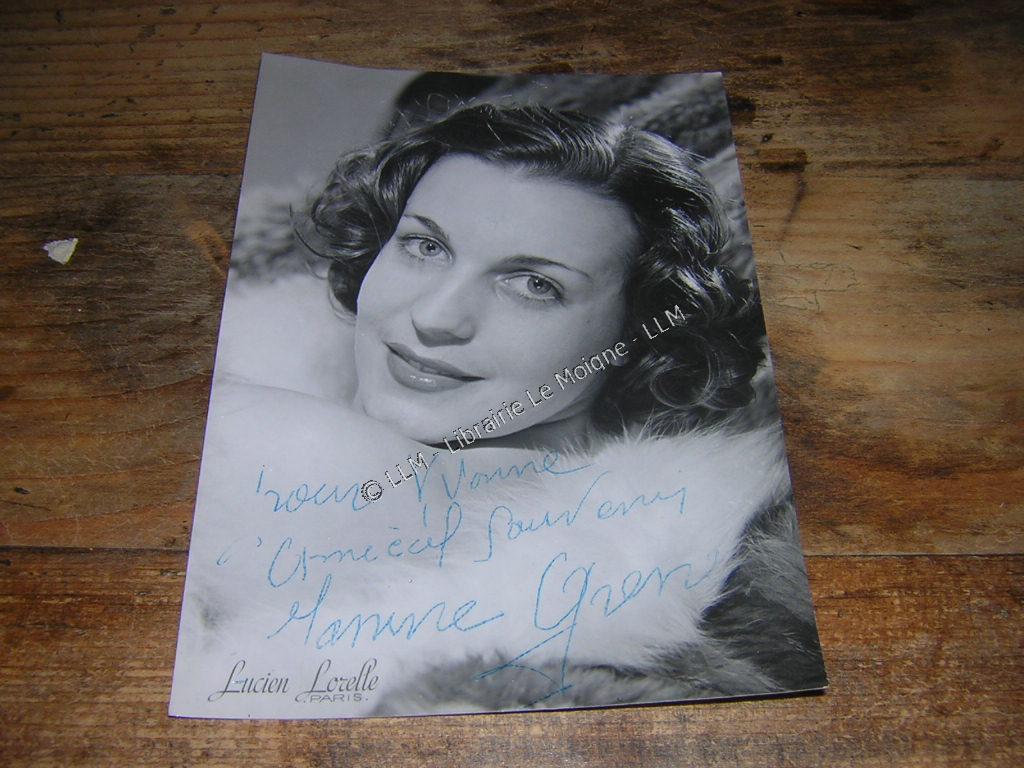 © LLM - Librairie Le Moigne - LLM
Pour Yvonne
Amical Souvenir
Lucien Lorelle
PARIS.